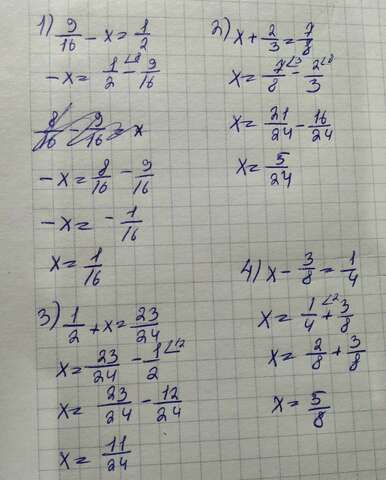 1) 9/16 - x = 1/2
-x = 1/2 - 9/16
8/16 - 9/16 = x
-x = 8/16 - 9/16
-x = - 1/16
x = 1/16
2) x + 2/3 = 7/8
x = 7/8 - 2/3
x = 21/24 - 16/24
x = 5/24
3) 1/2 + x = 23/24
x = 23/24 - 1/2
x = 23/24 - 12/24
x = 11/24
4) x - 3/8 = 1/4
x = 1/4 + 3/8
x = 2/8 + 3/8
x = 5/8